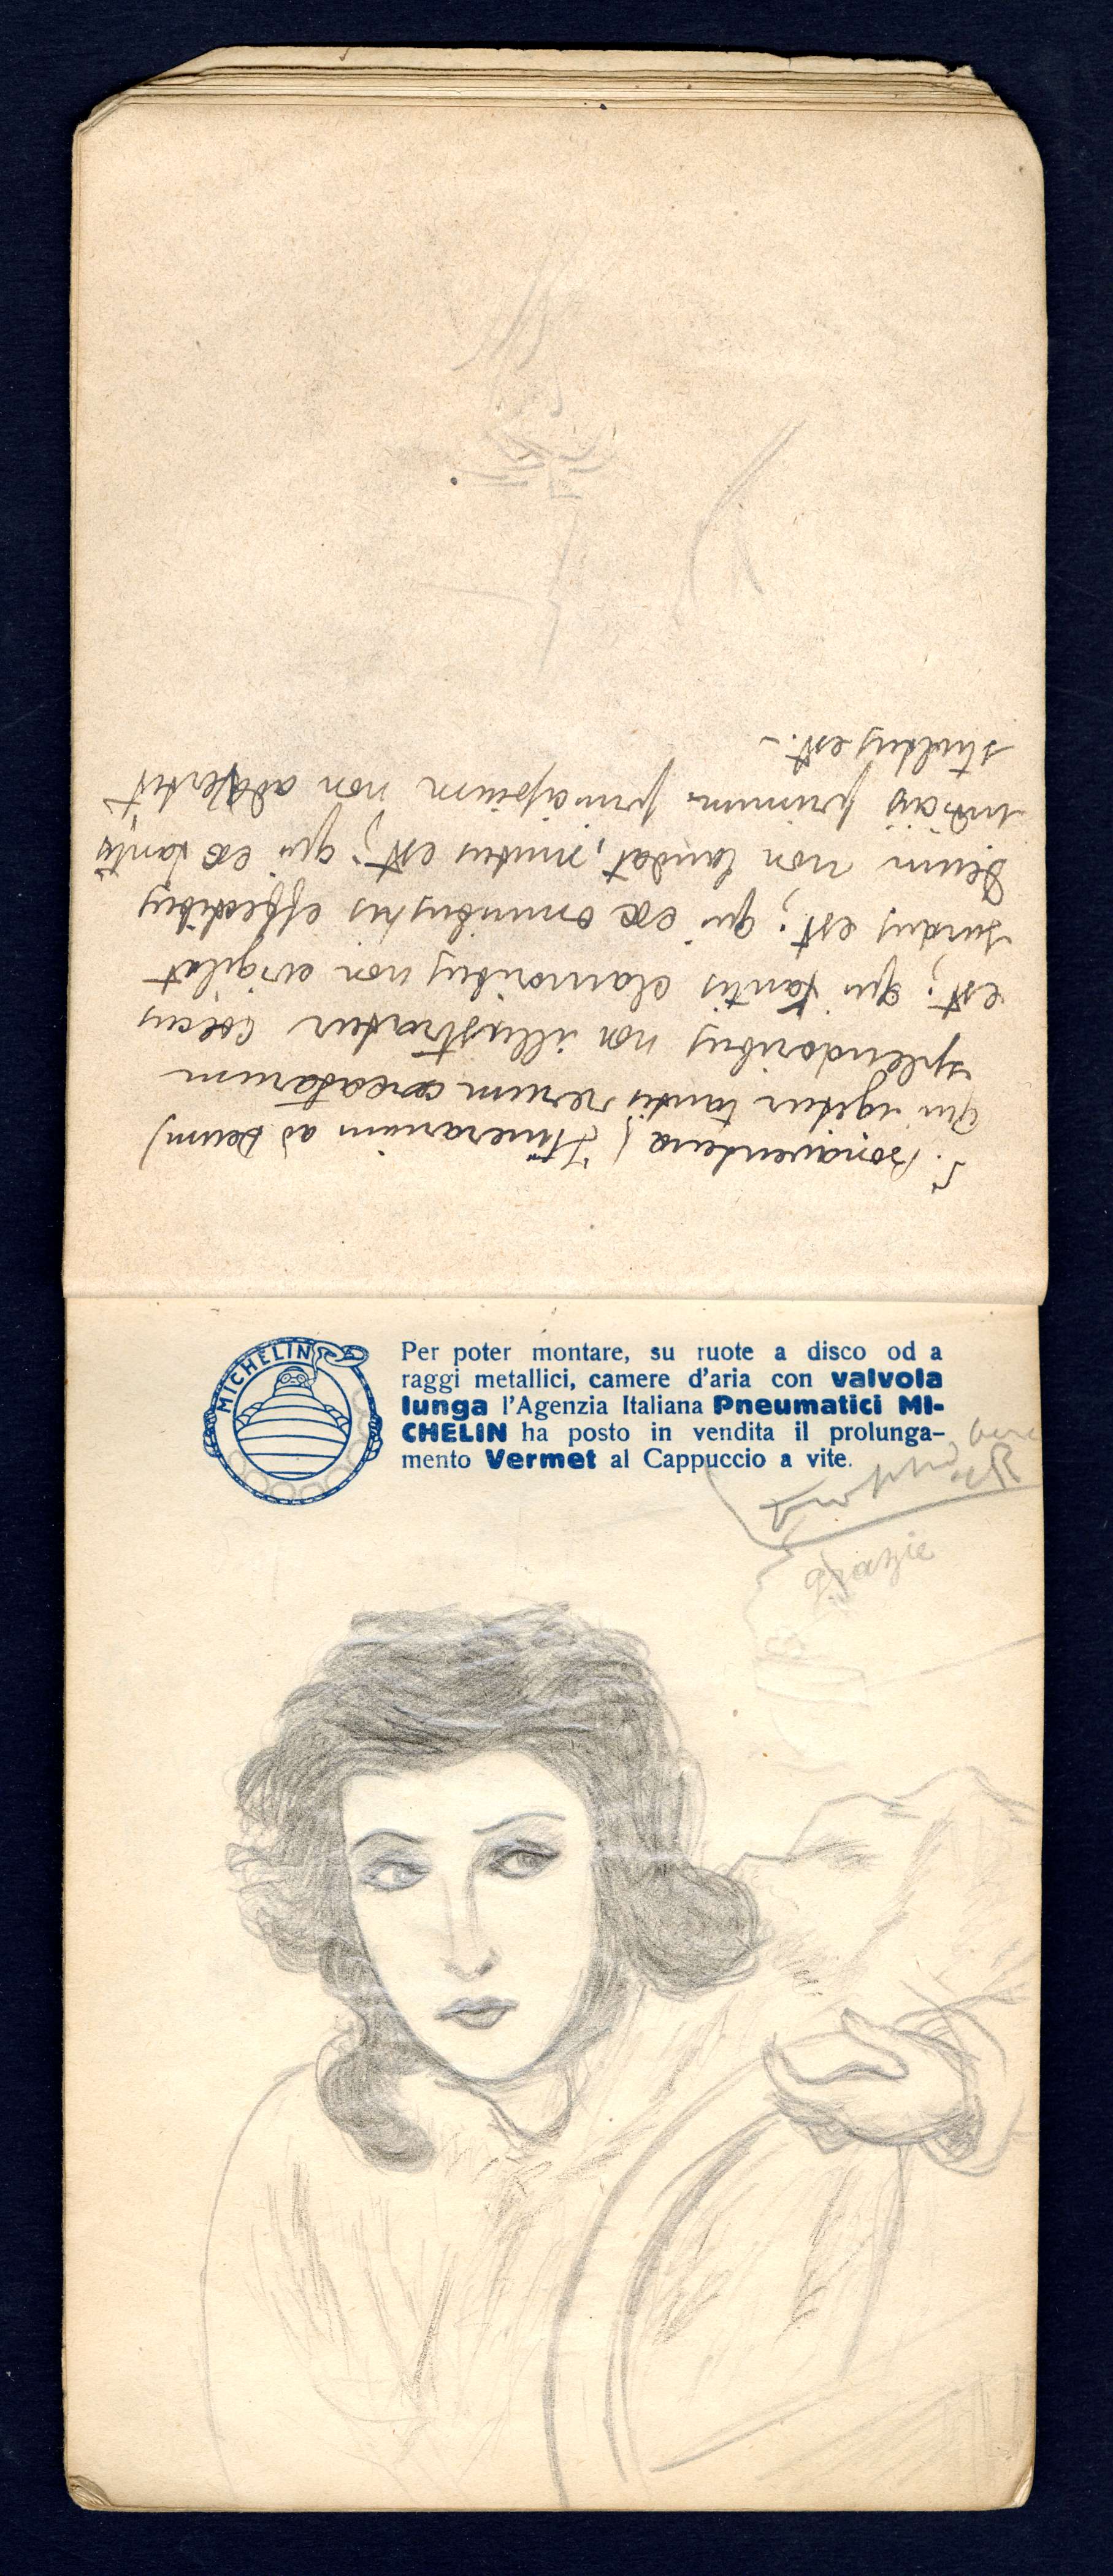 S. Bonaventura (Itinerarium ad Deum)
Qui igitur tantis rerum creatarum
splendoribus non illustratur coecus
est; qui tantis clamoribus non evigilat
surdus est; qui ex omnibus his effectibus
Deum non laudat, mutus est; qui ex tantis
indiciis primum principium non advertit
stultus est.-
MICHELIN
Per poter montare, su ruote a disco od a
raggi metallici, camere d'aria con valvola
lunga l'Agenzia Italiana Pneumatici MI-
CHELIN ha posto in vendita il prolunga-
mento Vermet al Cappuccio a vite.
grazie